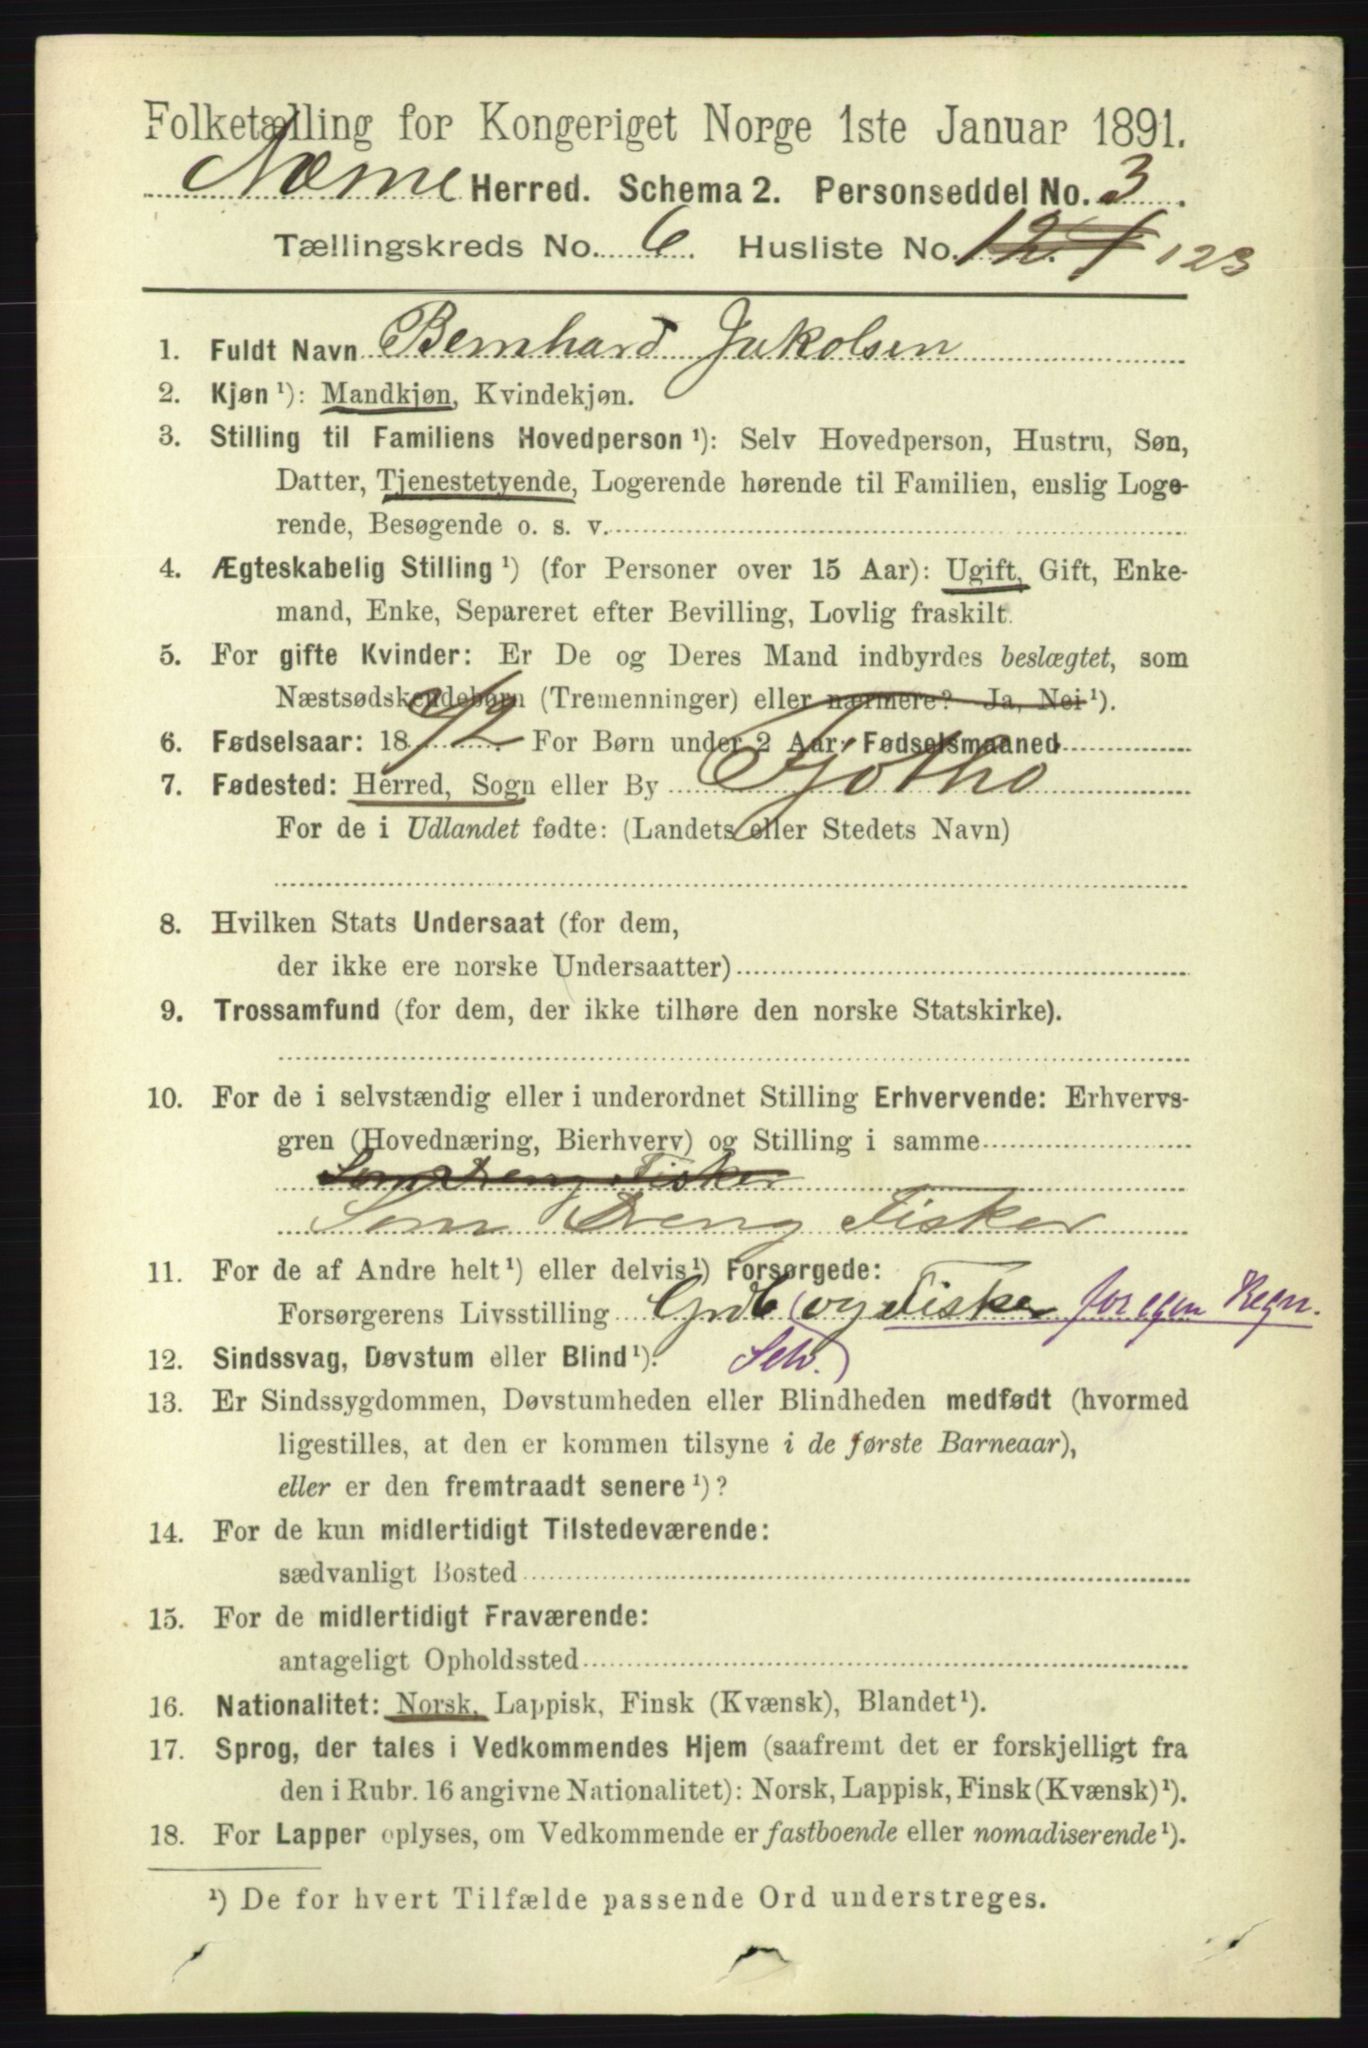 Folketælling for Kongeriget Norge 1ste Januar 1891.
Næsne Herred. Schema 2. Personseddel No. 3.
Tællingskreds No. 6. Husliste No. 123
1. Fuldt Navn Bernhard Jakolsen
2. Kjøn ¹): Mandkjøn, Kvindekjøn.
3. Stilling til Familiens Hovedperson ¹): Selv Hovedperson, Hustru, Søn,
Datter, Tjenestetyende, Logerende hørende til Familien, enslig Loge-
rende, Besøgende o. s. v.
4. Ægteskabelig Stilling ¹) (for Personer over 15 Aar): Ugift, Gift, Enke-
mand, Enke, Separeret efter Bevilling, Lovlig fraskilt.
5. For gifte Kvinder: Er De og Deres Mand indbyrdes beslægtet, som
Næstsødskendebørn (Tremenninger) eller nærmere? Ja, Nei ¹).
6. Fødselsaar: 1872. For Børn under 2 Aar: Fødselsmaaned
7. Fødested: Herred, Sogn eller By Tjøtho
For de i Udlandet fødte: (Landets eller Stedets Navn)
8. Hvilken Stats Undersaat (for dem,
der ikke ere norske Undersaatter)
9. Trossamfund (for dem, der ikke tilhøre den norske Statskirke).
10. For de i selvstændig eller i underordnet Stilling Erhvervende: Erhvervs-
gren (Hovednæring, Bierhverv) og Stilling i samme
Som Dreng Fisker
Som Dreng Fisker
11. For de af Andre helt ¹) eller delvis ¹) Forsørgede:
Forsørgerens Livsstilling Grdb (og Fisker for egen Regn.
12. Sindssvag, Døvstum eller Blind ¹). Selv.)
13. Er Sindssygdommen, Døvstumheden eller Blindheden medfødt (hvormed
ligestilles, at den er kommen tilsyne i de første Barneaar),
eller er den fremtraadt senere ¹)?
14. For de kun midlertidigt Tilstedeværende:
sædvanligt Bosted
15. For de midlertidigt Fraværende:
antageligt Opholdssted
16. Nationalitet: Norsk, Lappisk, Finsk (Kvænsk), Blandet ¹).
17. Sprog, der tales i Vedkommendes Hjem (saafremt det er forskjelligt fra
den i Rubr. 16 angivne Nationalitet): Norsk, Lappisk, Finsk (Kvænsk) ¹).
18. For Lapper oplyses, om Vedkommende er fastboende eller nomadiserende ¹).
¹) De for hvert Tilfælde passende Ord understreges.